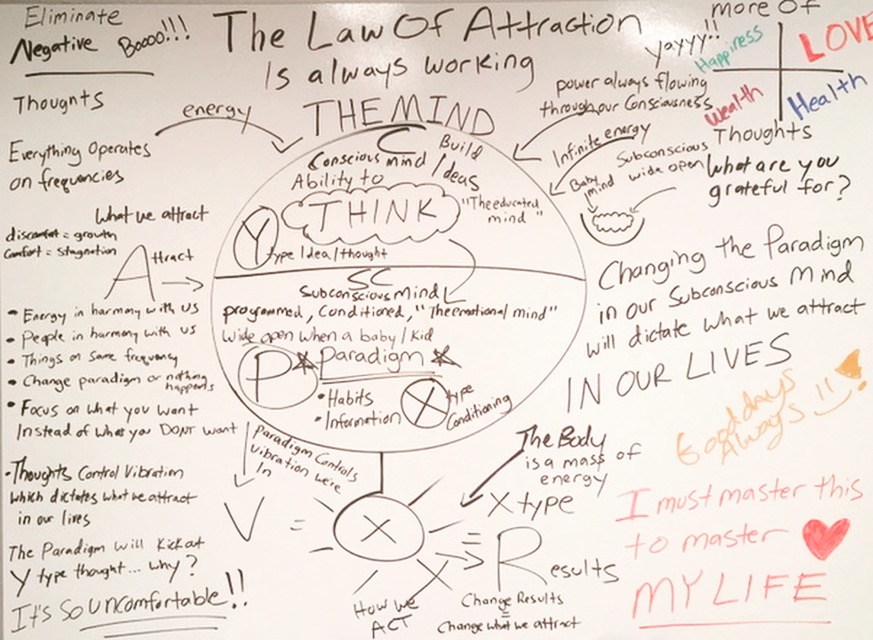 Eliminate
Negative Boooo!!!
Thoughts
The Law Of Attraction
Is always working
more of
yayyy!!
Happiness
LOVE
Wealth
Health
Thoughts
What are you
grateful for?
energy
THE MIND
power always flowing
through our consciousness
Infinite energy
Subconscious
wide open
Baby
mind
Everything Operates
on frequencies
What we attract
discomfort = growth
Comfort = Stagnation
Attract
• Energy in harmony with us
• People in harmony with us
• Things on Same frequency
• Change paradigm or nothing
happens
• Focus on what you want
Instead of what you DONT want
• Thoughts Control Vibration
which dictates what we attract
in our lives
The Paradigm will Kick out
Y type thought... why?
It's so uncomfortable!!
C
Conscious mind
Build
Ideas
Ability to
THINK
"The educated
mind"
Y
type Idea/thought
SC
Subconscious Mind
programmed, Conditioned, "The emotional mind"
Wide open when a baby/kid
P
Paradigm
• Habits
• Information
X type
Conditioning
Paradigm Controls
vibration we're
In
V =
X
The Body
is a mass of
energy
X type
= Results
X
How we
ACT
Change Results
=
Change what we attract
Changing the Paradigm
in our Subconscious Mind
will dictate what we attract
IN OUR LIVES
Good days
Always !!
I must master this
to master
MY LIFE